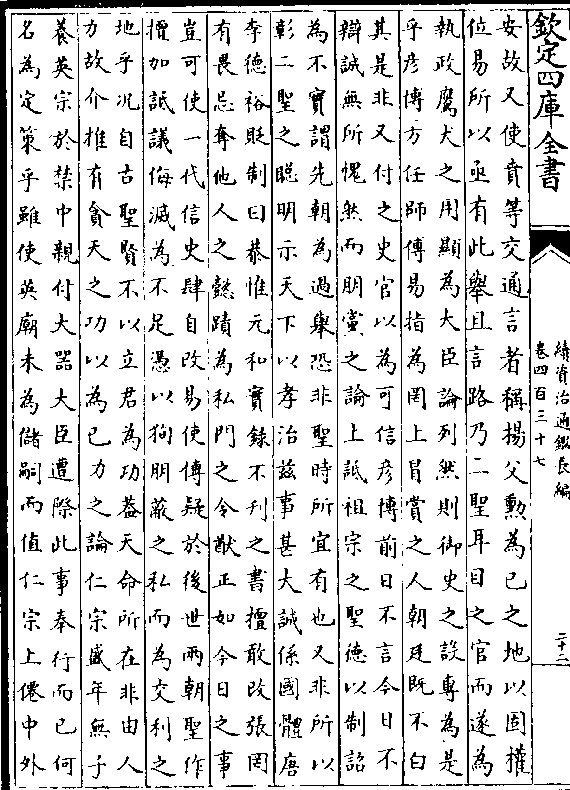 欽定四庫全書
續資治通鑑長編
卷四百三十七
二十二
安故又使賁等交通言者稱揚父勲為已之地以固權
位易所以亟有此舉且言路乃二聖耳目之官而遂為
執政鷹犬之用顯為大臣論列然則御史之設專為是
乎彦博方任師傅易指為罔上冒賞之人朝廷既不白
其是非又付之史官以為可信彦博前日不言今日不
辯誠無所愧然而朋黨之論上詆祖宗之聖德以制詔
為不實謂先朝為過舉恐非聖時所宜有也又非所以
彰二聖之聰明示天下以孝治兹事甚大誠係國體唐
李德裕貶制曰恭惟元和實錄不刋之書擅敢改張罔
有畏忌奪他人之懿蹟為私門之令猷正如今日之事
豈可使一代信史肆自改易使傳疑於後世兩朝聖作
擅加詆議侮滅為不足憑以狥朋蔽之私而為交利之
地乎况自古聖賢不以立君為功葢天命所在非由人
力故介推有貪天之功以為已力之論仁宗盛年無子
養英宗於禁中親付大器大臣遭際此事奉行而已何
名為定策乎雖使英廟未為儲嗣而值仁宗上僊中外